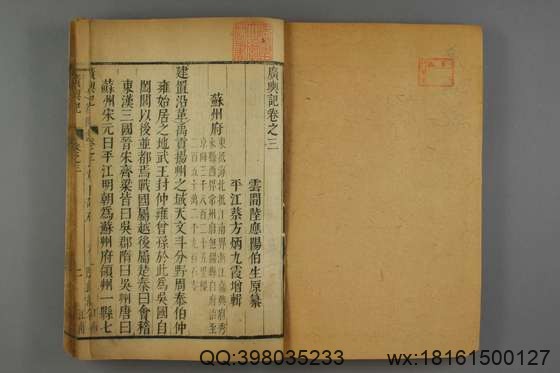 廣輿記卷之三
雲間陸應陽伯生原纂
平江蔡方炳九霞增輯
蘇州府
建置沿革禹貢揚州之域天文斗分野周泰伯仲
雍始居之地武王封仲雍曾孫於此爲吳國自
闔閭以後並都焉戰國屬越後屬楚秦曰會稽
東漢三國晉宋齊梁皆曰吳郡隋曰吳州唐曰
蘇州宋元曰平江明朝爲蘇州府領州一縣七
廣輿記
卷之三
QQ:398035233
wx:18161500127